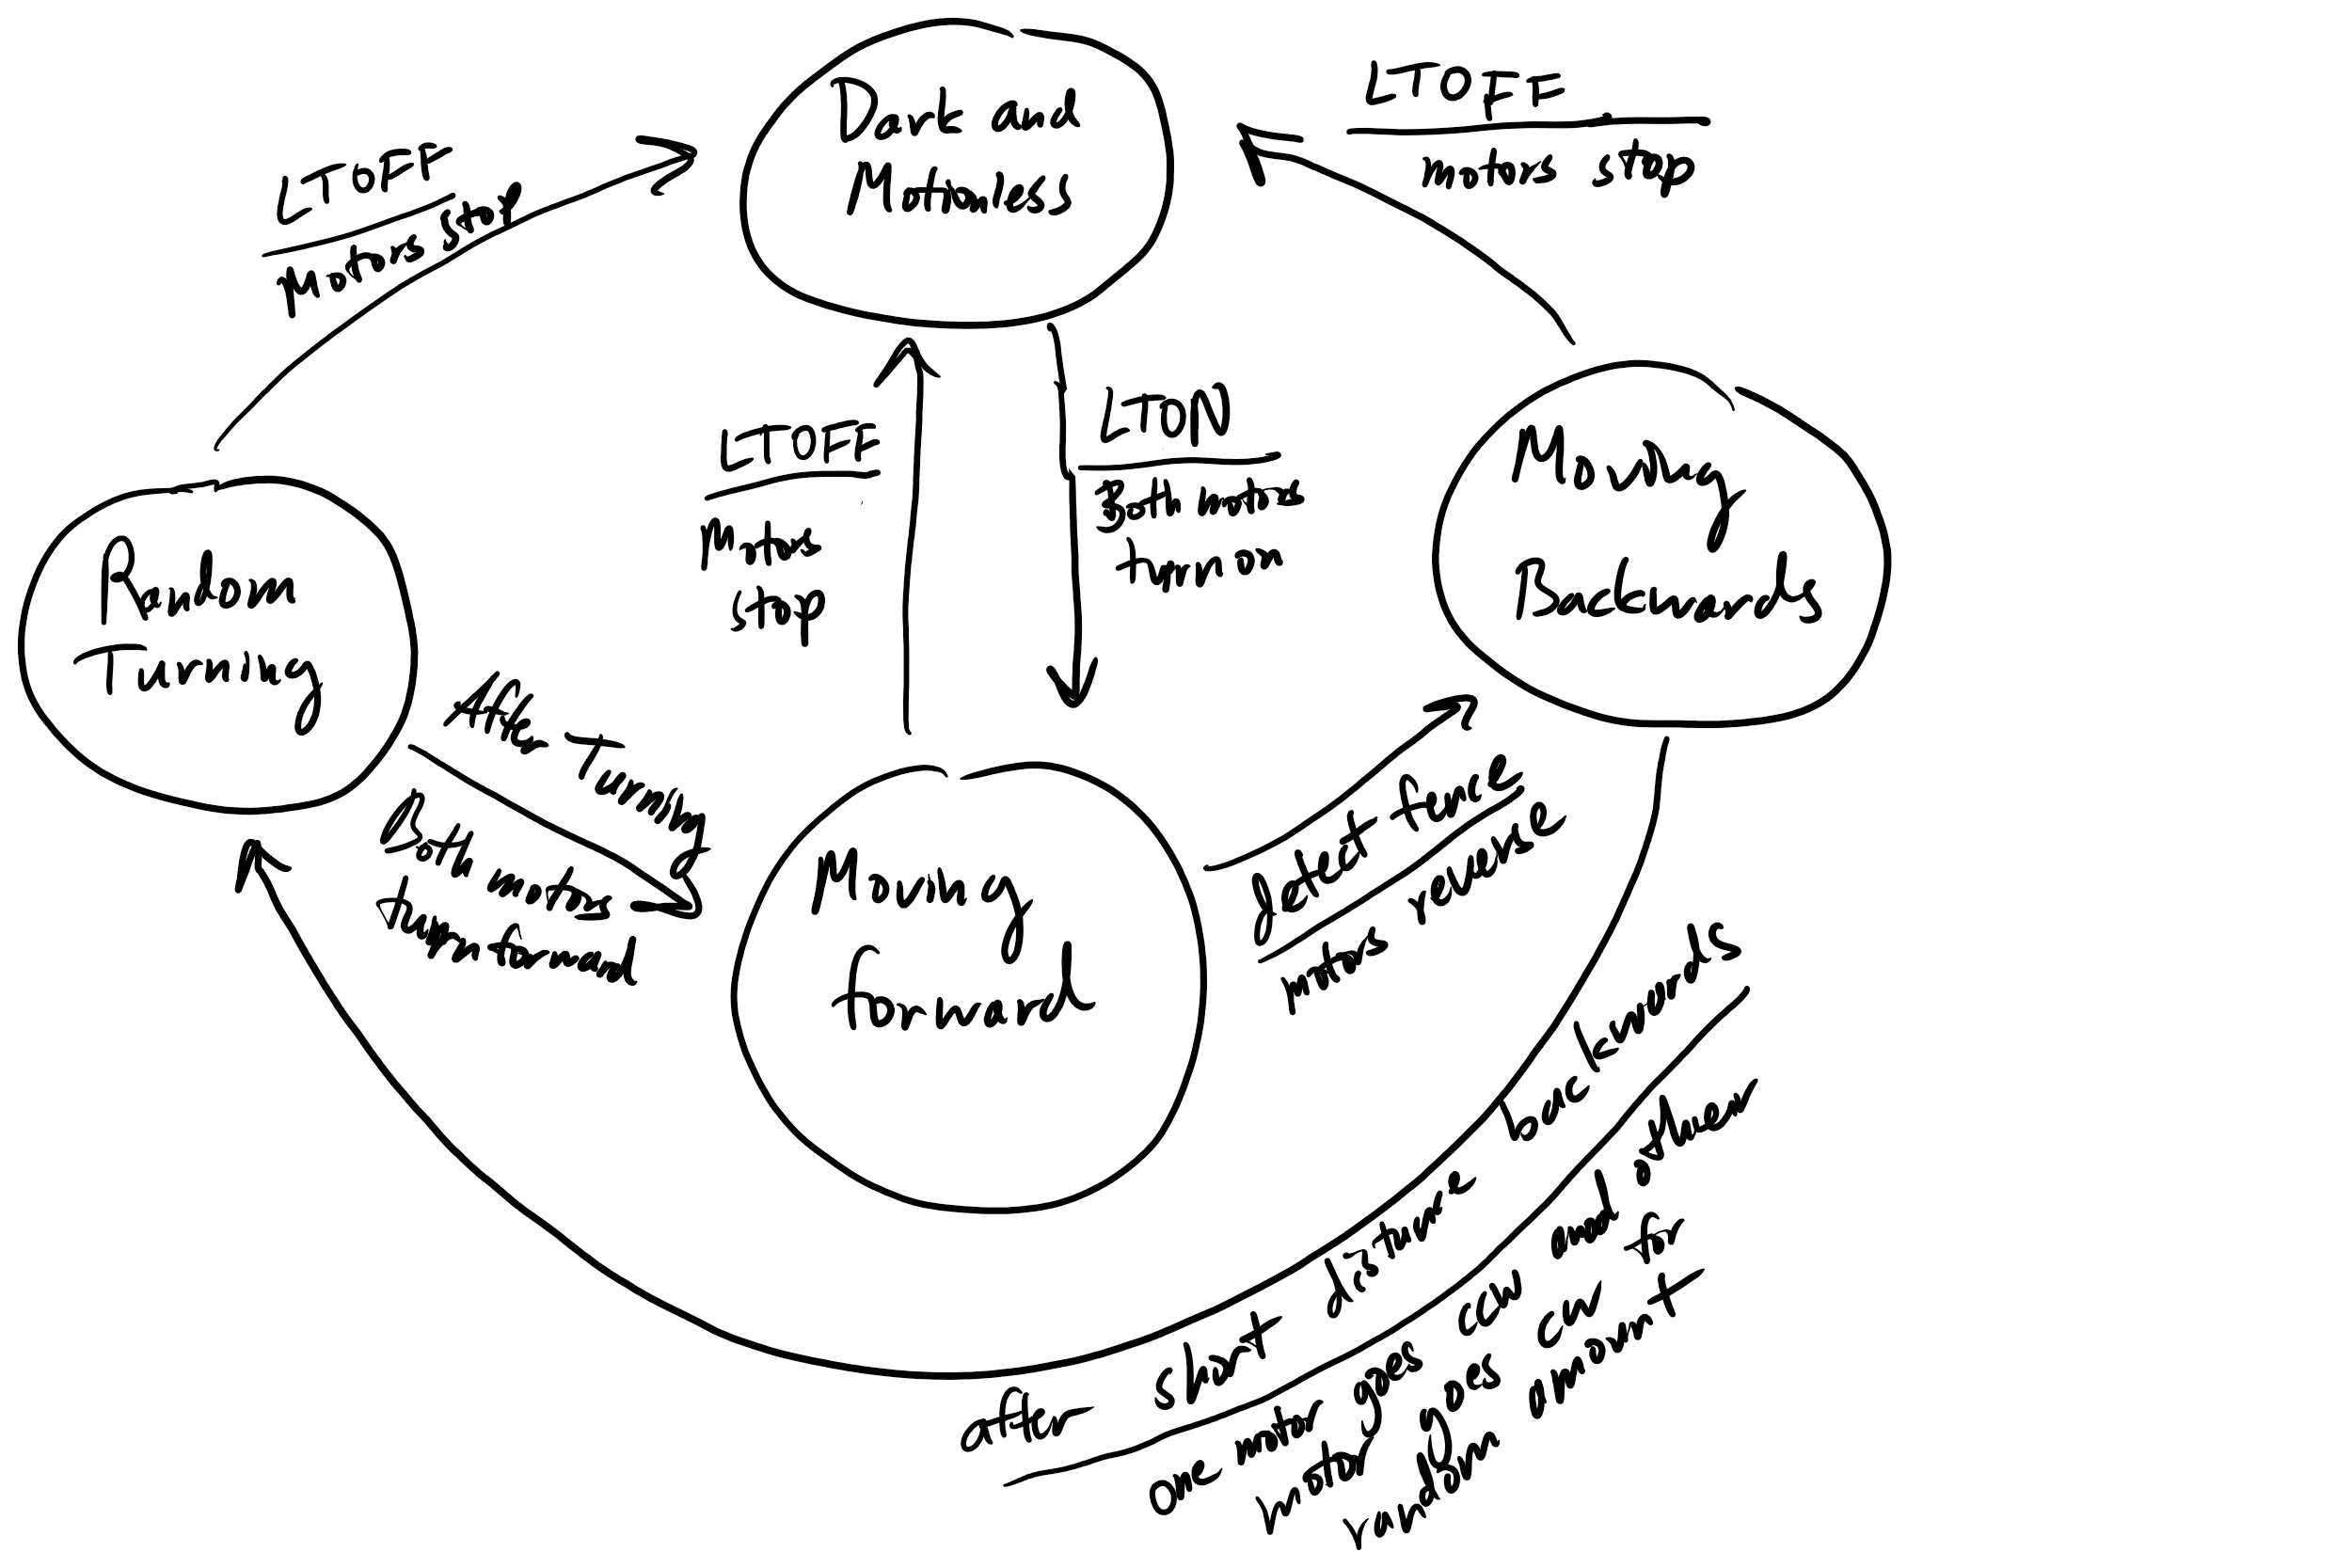 Dark and
Motionless
LTOFF
motors stop
LTOFF
Motors stop
LTOFF
Motors
stop
LTON
Both motors
turn on
Moving
Backwards
Random
Turning
After Turning
Both motors
Turn forward
Moving
forward
detect fence
motors reverse
after short distance backwards
one motor goes cw and other
motor goes ccw for
random amount